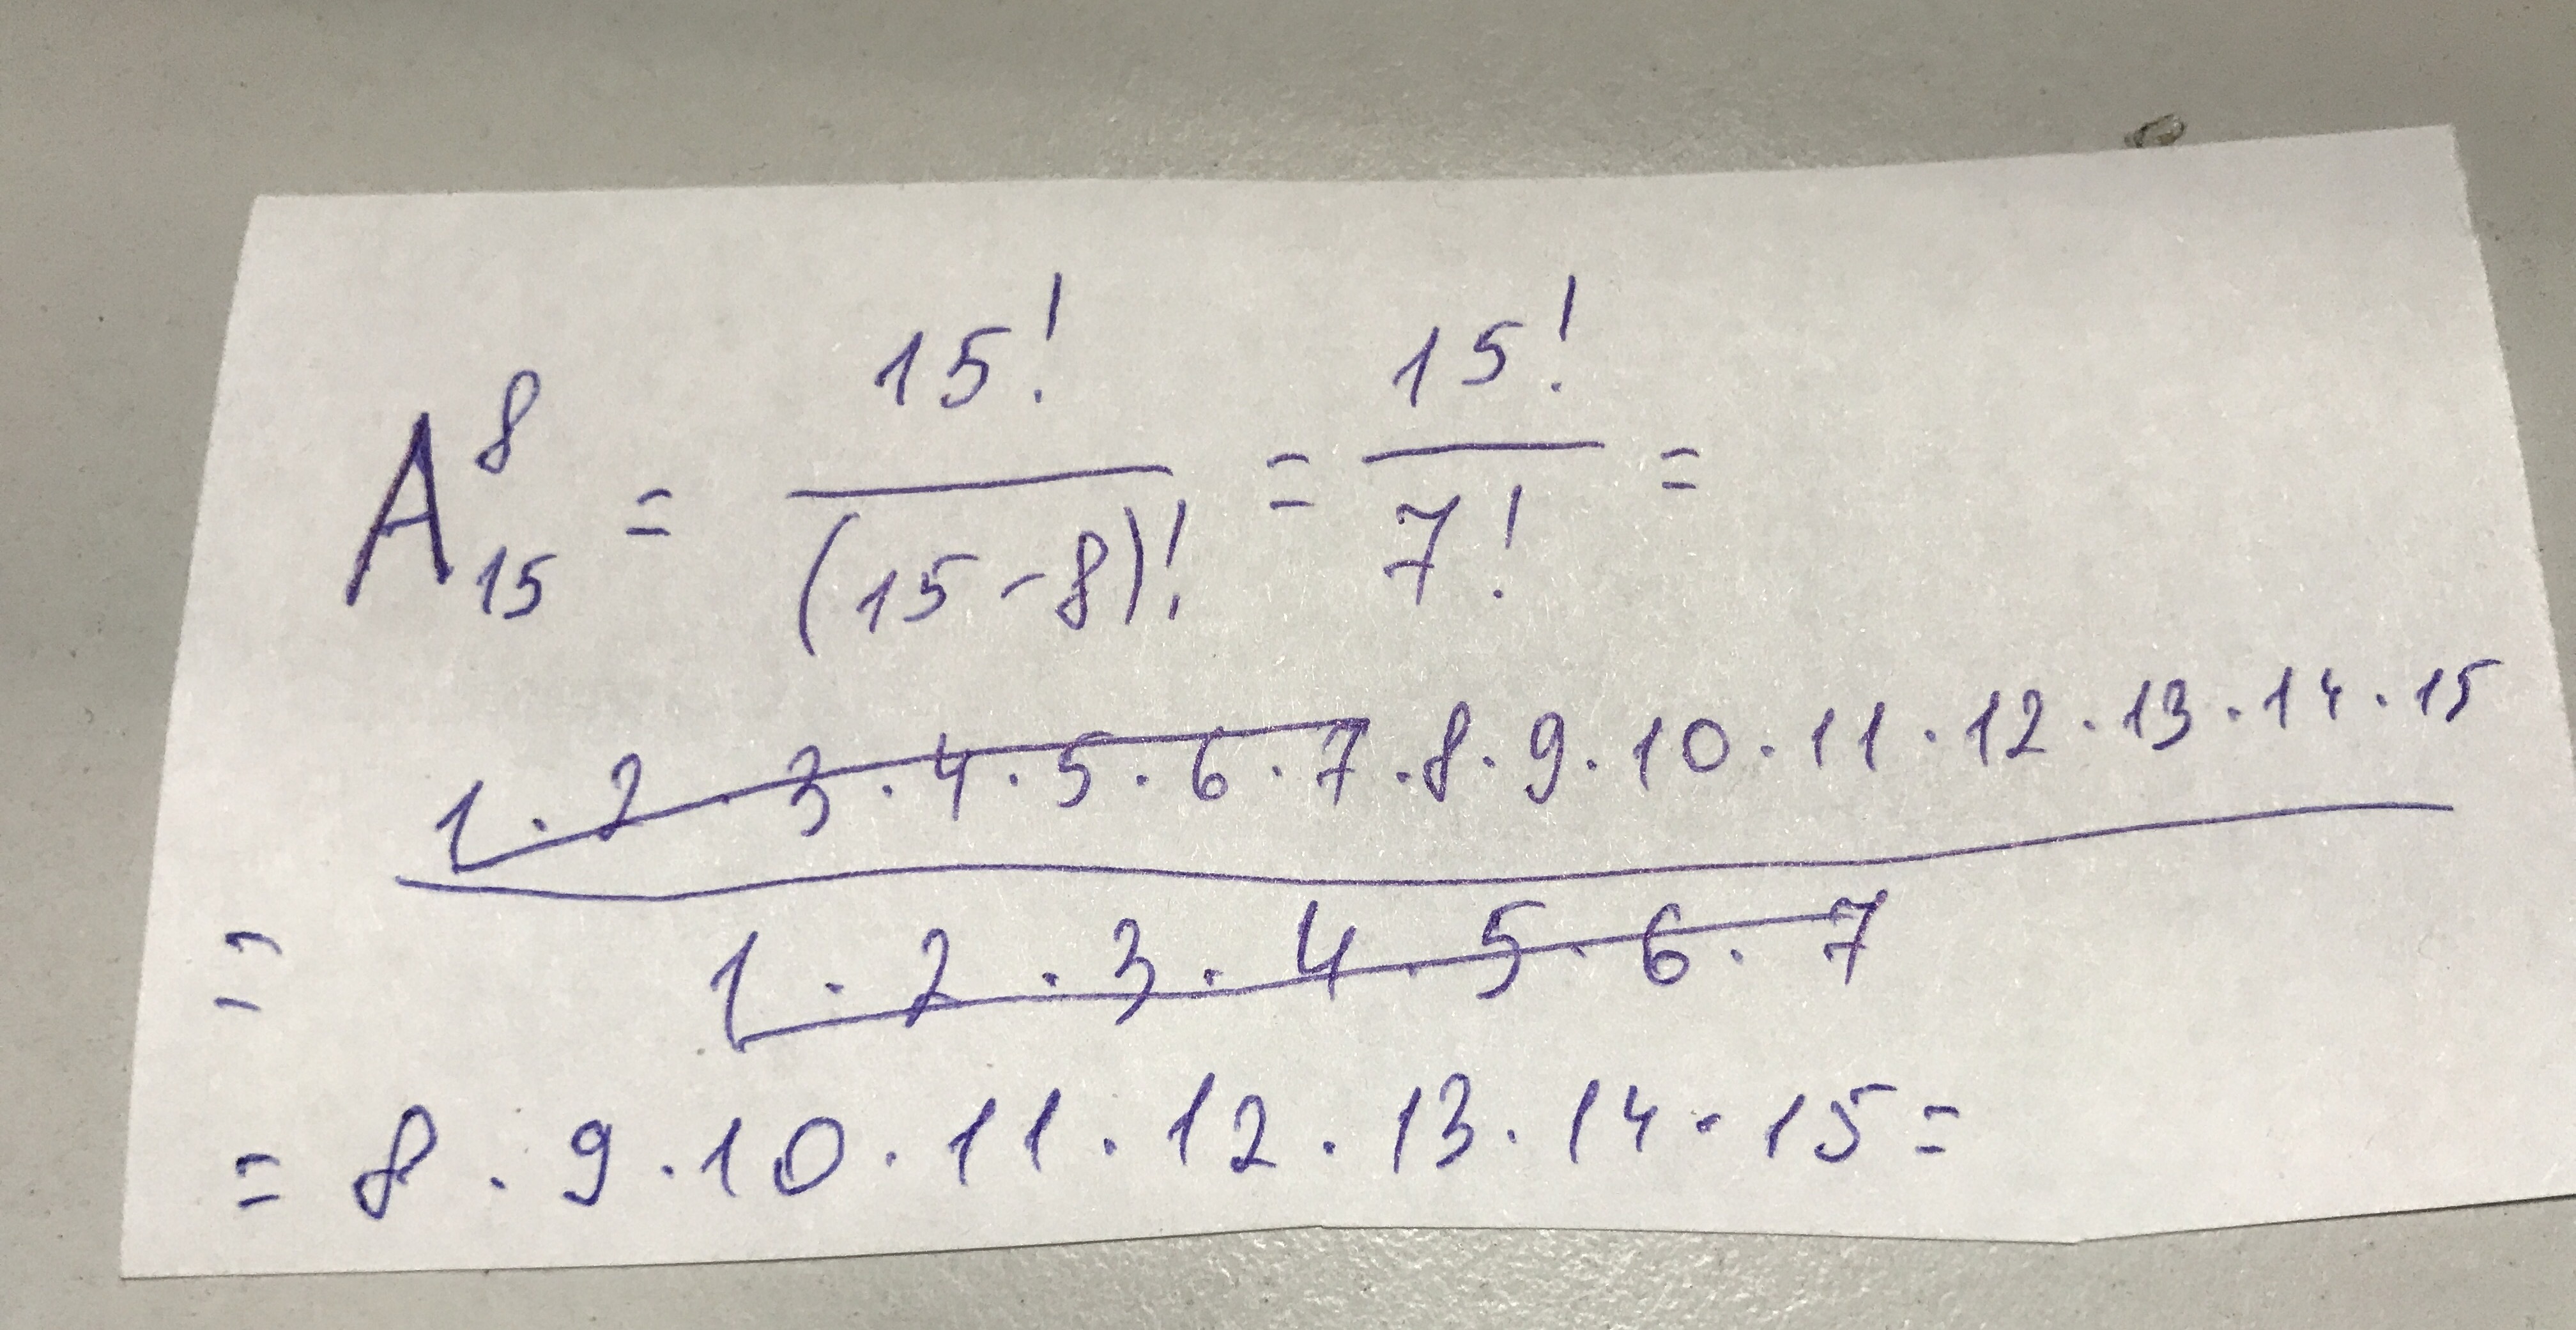 A₁₅⁸ = 15! / (15-8)! = 15! / 7! =
= 1·2·3·4·5·6·7·8·9·10·11·12·13·14·15 / 1·2·3·4·5·6·7
= 8·9·10·11·12·13·14·15=